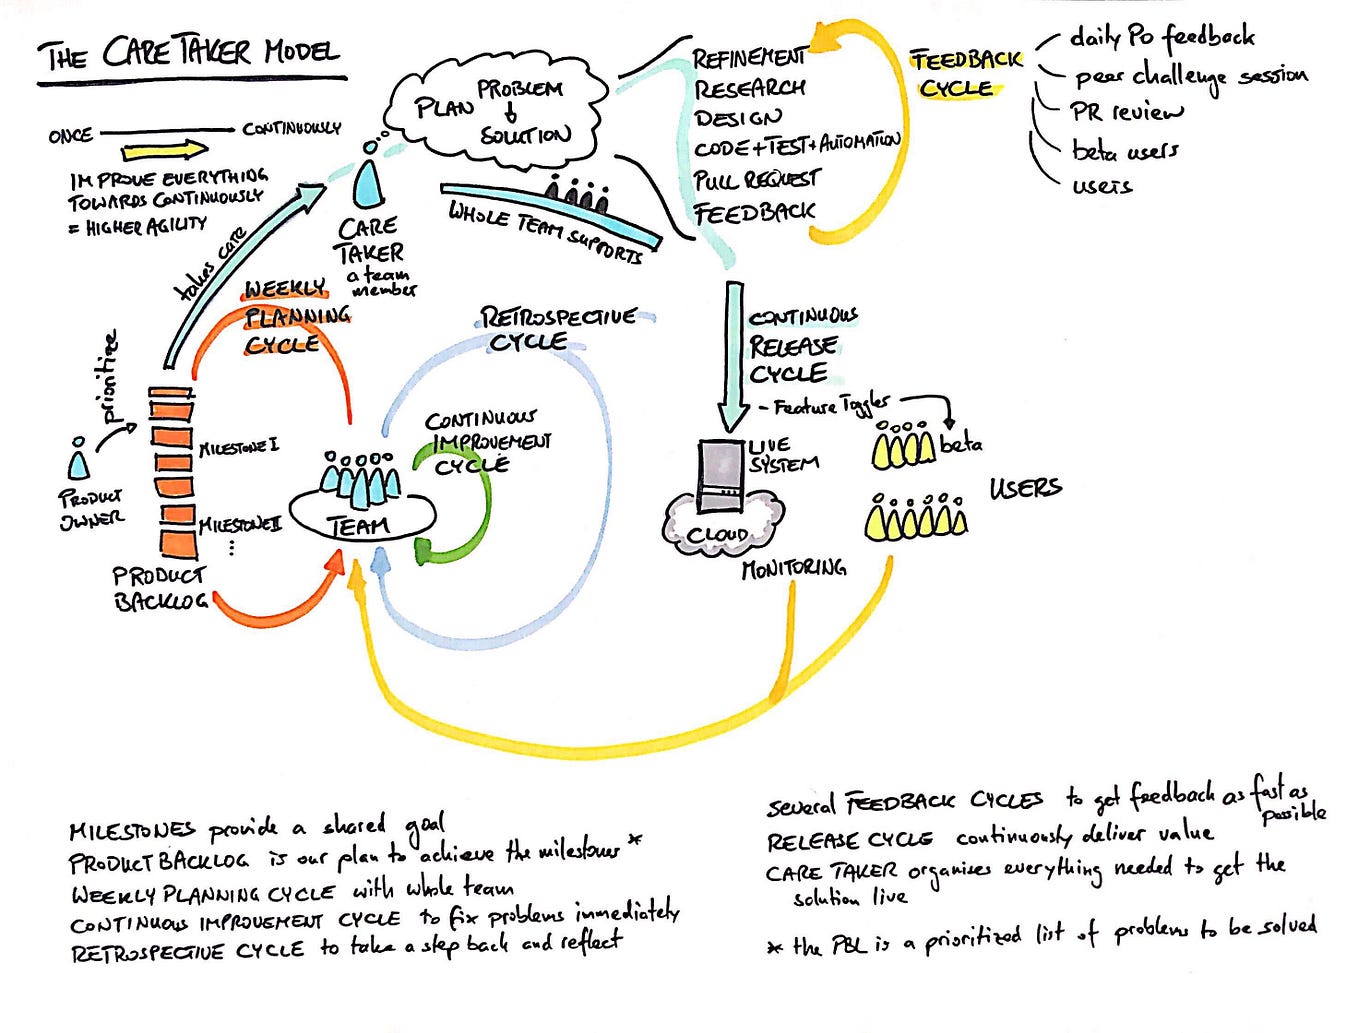 THE CARE TAKER MODEL
ONCE
CONTINUOUSLY
IMPROVE EVERYTHING
TOWARDS CONTINUOUSLY
= HIGHER AGILITY
PLAN
PROBLEM
SOLUTION
REFINEMENT
RESEARCH
DESIGN
CODE+TEST+AUTOMATION
PULL REQUEST
FEEDBACK
FEEDBACK
CYCLE
daily PO feedback
peer challenge session
PR review
beta users
users
takes care
CARE
TAKER
a team
member
WHOLE TEAM SUPPORTS
WEEKLY
PLANNING
CYCLE
RETROSPECTIVE
CYCLE
CONTINUOUS
RELEASE
CYCLE
- Feature Toggles
prioritize
PRODUCT
OWNER
MILESTONE I
MILESTONE II
PRODUCT
BACKLOG
CONTINUOUS
IMPROVEMENT
CYCLE
TEAM
LIVE
SYSTEM
CLOUD
MONITORING
beta
USERS
MILESTONES provide a shared goal
PRODUCT BACKLOG is our plan to achieve the milestones *
WEEKLY PLANNING CYCLE with whole team
CONTINUOUS IMPROVEMENT CYCLE to fix problems immediately
RETROSPECTIVE CYCLE to take a step back and reflect
several FEEDBACK CYCLES to get feedback as fast as
possible
RELEASE CYCLE continuously deliver value
CARE TAKER organises everything needed to get the
solution live
* the PBL is a prioritized list of problems to be solved